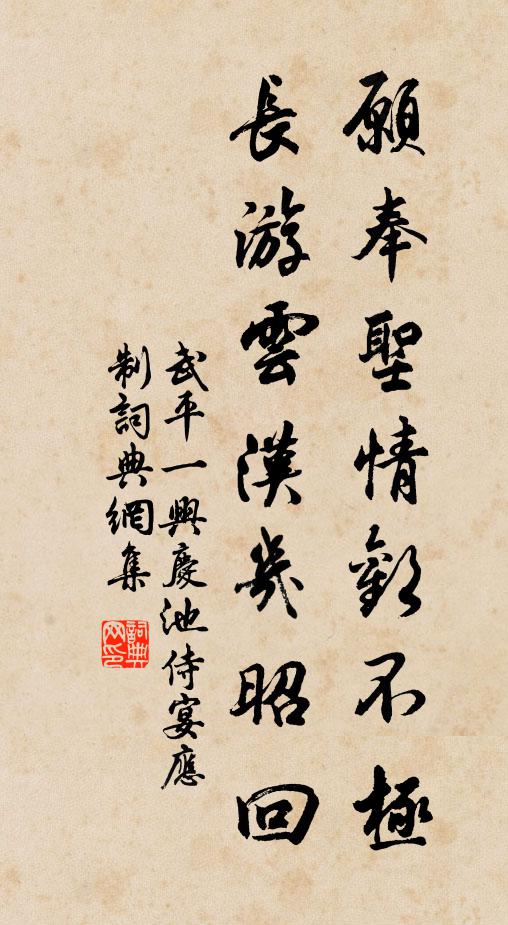 願奉聖情歡不極
長游雲漢幾昭回
武平一興慶池侍宴應
制詞典網集
詞典網印